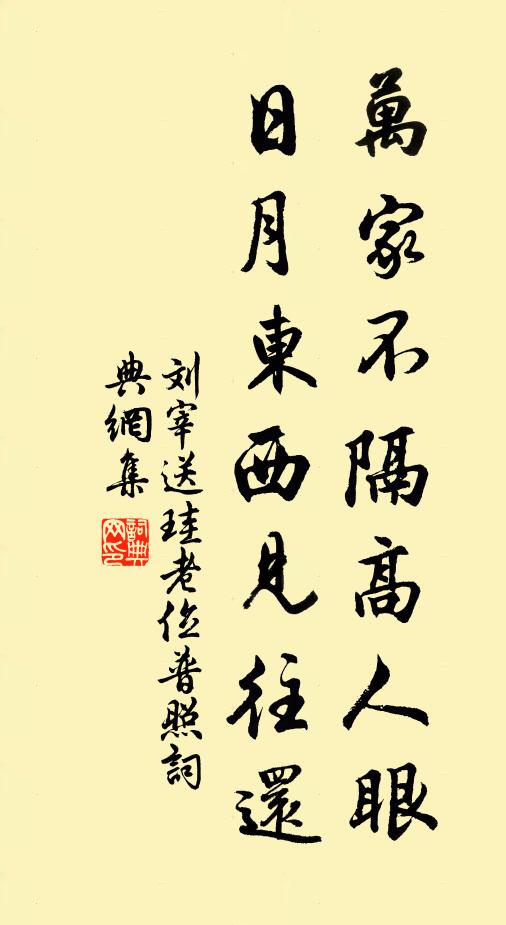 萬家不隔高人眼
日月東西見往還
刘宰送珪老住普照詞
典網集
詞典
网印